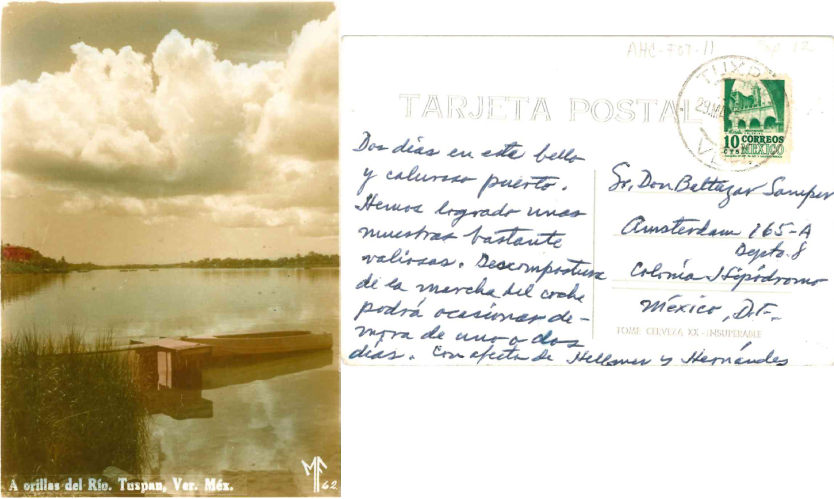 A orillas del Río. Tuxpan, Ver. Méx.
MF
62
AHC-FOT-11
TARJETA POSTAL
TUXP
29 MA
10 CORREOS
CTS MEXICO
Dos días en este bello
y caluroso puerto.
Hemos logrado unas
muestras bastante
valiosas. Descompostura
de la marcha del coche
podrá ocasionar de-
mora de uno o dos
días. Con afecto de Hellsmer y Hernández
Sr. Don Baltazar Samper
Amsterdam 165-A
Depto. 8
Colonia Hipódromo
México, D.F.
TOME CERVEZA XX - INSUPERABLE